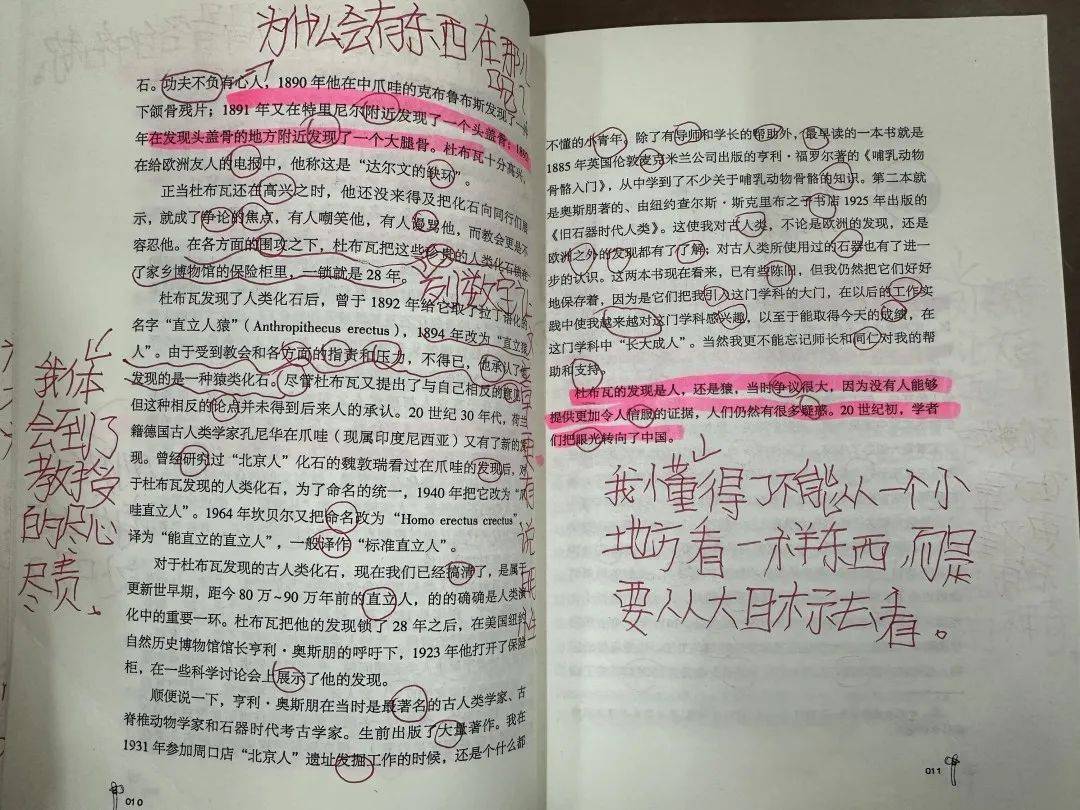 为什么会有东西在那儿
呢？
石。功夫不负有心人，1890 年他在中爪哇的克布鲁布斯发现了一件
下颌骨残片；1891 年又在特里尼尔附近发现了一个头盖骨；1892
年在发现头盖骨的地方附近发现了一个大腿骨。杜布瓦十分高兴，
在给欧洲友人的电报中，他称这是“达尔文的缺环”。
正当杜布瓦还在高兴之时，他还没来得及把化石向同行们展
示，就成了争论的焦点，有人嘲笑他，有人谩骂他，而教会更是不
容忍他。在各方面的围攻之下，杜布瓦把这些珍贵的人类化石锁在
了家乡博物馆的保险柜里，一锁就是 28 年。
杜布瓦发现了人类化石后，曾于 1892 年给它取了拉丁语化的
名字“直立人猿”（Anthropithecus erectus），1894 年改为“直立猿
人”。由于受到教会和各方面的指责和压力，不得已，他承认了他
发现的是一种猿类化石。尽管杜布瓦又提出了与自己相反的意见，
但这种相反的论点并未得到后来人的承认。20 世纪 30 年代，荷兰
籍德国古人类学家孔尼华在爪哇（现属印度尼西亚）又有了新的发
现。曾经研究过“北京人”化石的魏敦瑞看过在爪哇的发现后，对
于杜布瓦发现的人类化石，为了命名的统一，1940 年把它改为“爪
哇直立人”。1964 年坎贝尔又把命名改为“Homo erectus erectus”，
译为“能直立的直立人”，一般译作“标准直立人”。
对于杜布瓦发现的古人类化石，现在我们已经搞清了，是属于
更新世早期，距今 80 万~90 万年前的直立人，的的确确是人类演
化中的重要一环。杜布瓦把他的发现锁了 28 年之后，在美国纽约
自然历史博物馆馆长亨利·奥斯朋的呼吁下，1923 年他打开了保险
柜，在一些科学讨论会上展示了他的发现。
顺便说一下，亨利·奥斯朋在当时是最著名的古人类学家、古
脊椎动物学家和石器时代考古学家。生前出版了大量著作。我在
1931 年参加周口店“北京人”遗址发掘工作的时候，还是个什么都
010
我体
会到了
教授
的尽心
尽责
不懂的小青年。除了有导师和学长的帮助外，最早读的一本书就是
1885 年英国伦敦麦克米兰公司出版的亨利·福罗尔著的《哺乳动物
骨骼入门》，从中学到了不少关于哺乳动物骨骼的知识。第二本就
是奥斯朋著的、由纽约查尔斯·斯克里布之子书店 1925 年出版的
《旧石器时代人类》。这使我对古人类，不论是欧洲的发现，还是
欧洲之外的发现都有了了解，对古人类所使用过的石器也有了进一
步的认识。这两本书现在看来，已有些陈旧，但我仍然把它们好好
地保存着，因为是它们把我引入这门学科的大门，在以后的工作实
践中使我越来越对这门学科感兴趣，以至于能取得今天的成绩，在
这门学科中“长大成人”。当然我更不能忘记师长和同仁对我的帮
助和支持。
杜布瓦的发现是人，还是猿，当时争议很大，因为没有人能够
提供更加令人信服的证据，人们仍然有很多疑惑。20 世纪初，学者
们把眼光转向了中国。
我懂得了不能从一个小
地方看一样东西，而是
要从大目标去看。
011